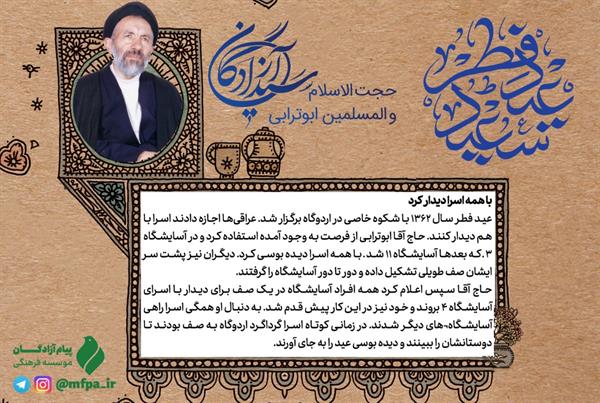 عید فطر
سعید
سید آزادگان
حجت الاسلام
و المسلمین ابوترابی
با همه اسرا دیدار کرد
عید فطر سال ۱۳۶۲ با شکوه خاصی در اردوگاه برگزار شد. عراقی‌ها اجازه دادند اسرا با
هم دیدار کنند. حاج آقا ابوترابی از فرصت به وجود آمده استفاده کرد و در آسایشگاه
۳ـ که بعدها آسایشگاه ۱۱ شد ـ با همه اسرا دیده بوسی کرد. دیگران نیز پشت سر
ایشان صف طویلی تشکیل داده و دور تا دور آسایشگاه را گرفتند.
حاج آقا سپس اعلام کرد همه افراد آسایشگاه در یک صف برای دیدار با اسرای
آسایشگاه ۴ بروند و خود نیز در این کار پیش قدم شد. به دنبال او همگی اسرا راهی
آسایشگاه¬های دیگر شدند. در زمانی کوتاه اسرا گرداگرد اردوگاه به صف بودند تا
دوستانشان را ببینند و دیده بوسی عید را به جای آورند.
پیام آزادگان
موسسه فرهنگی
@mfpa_ir